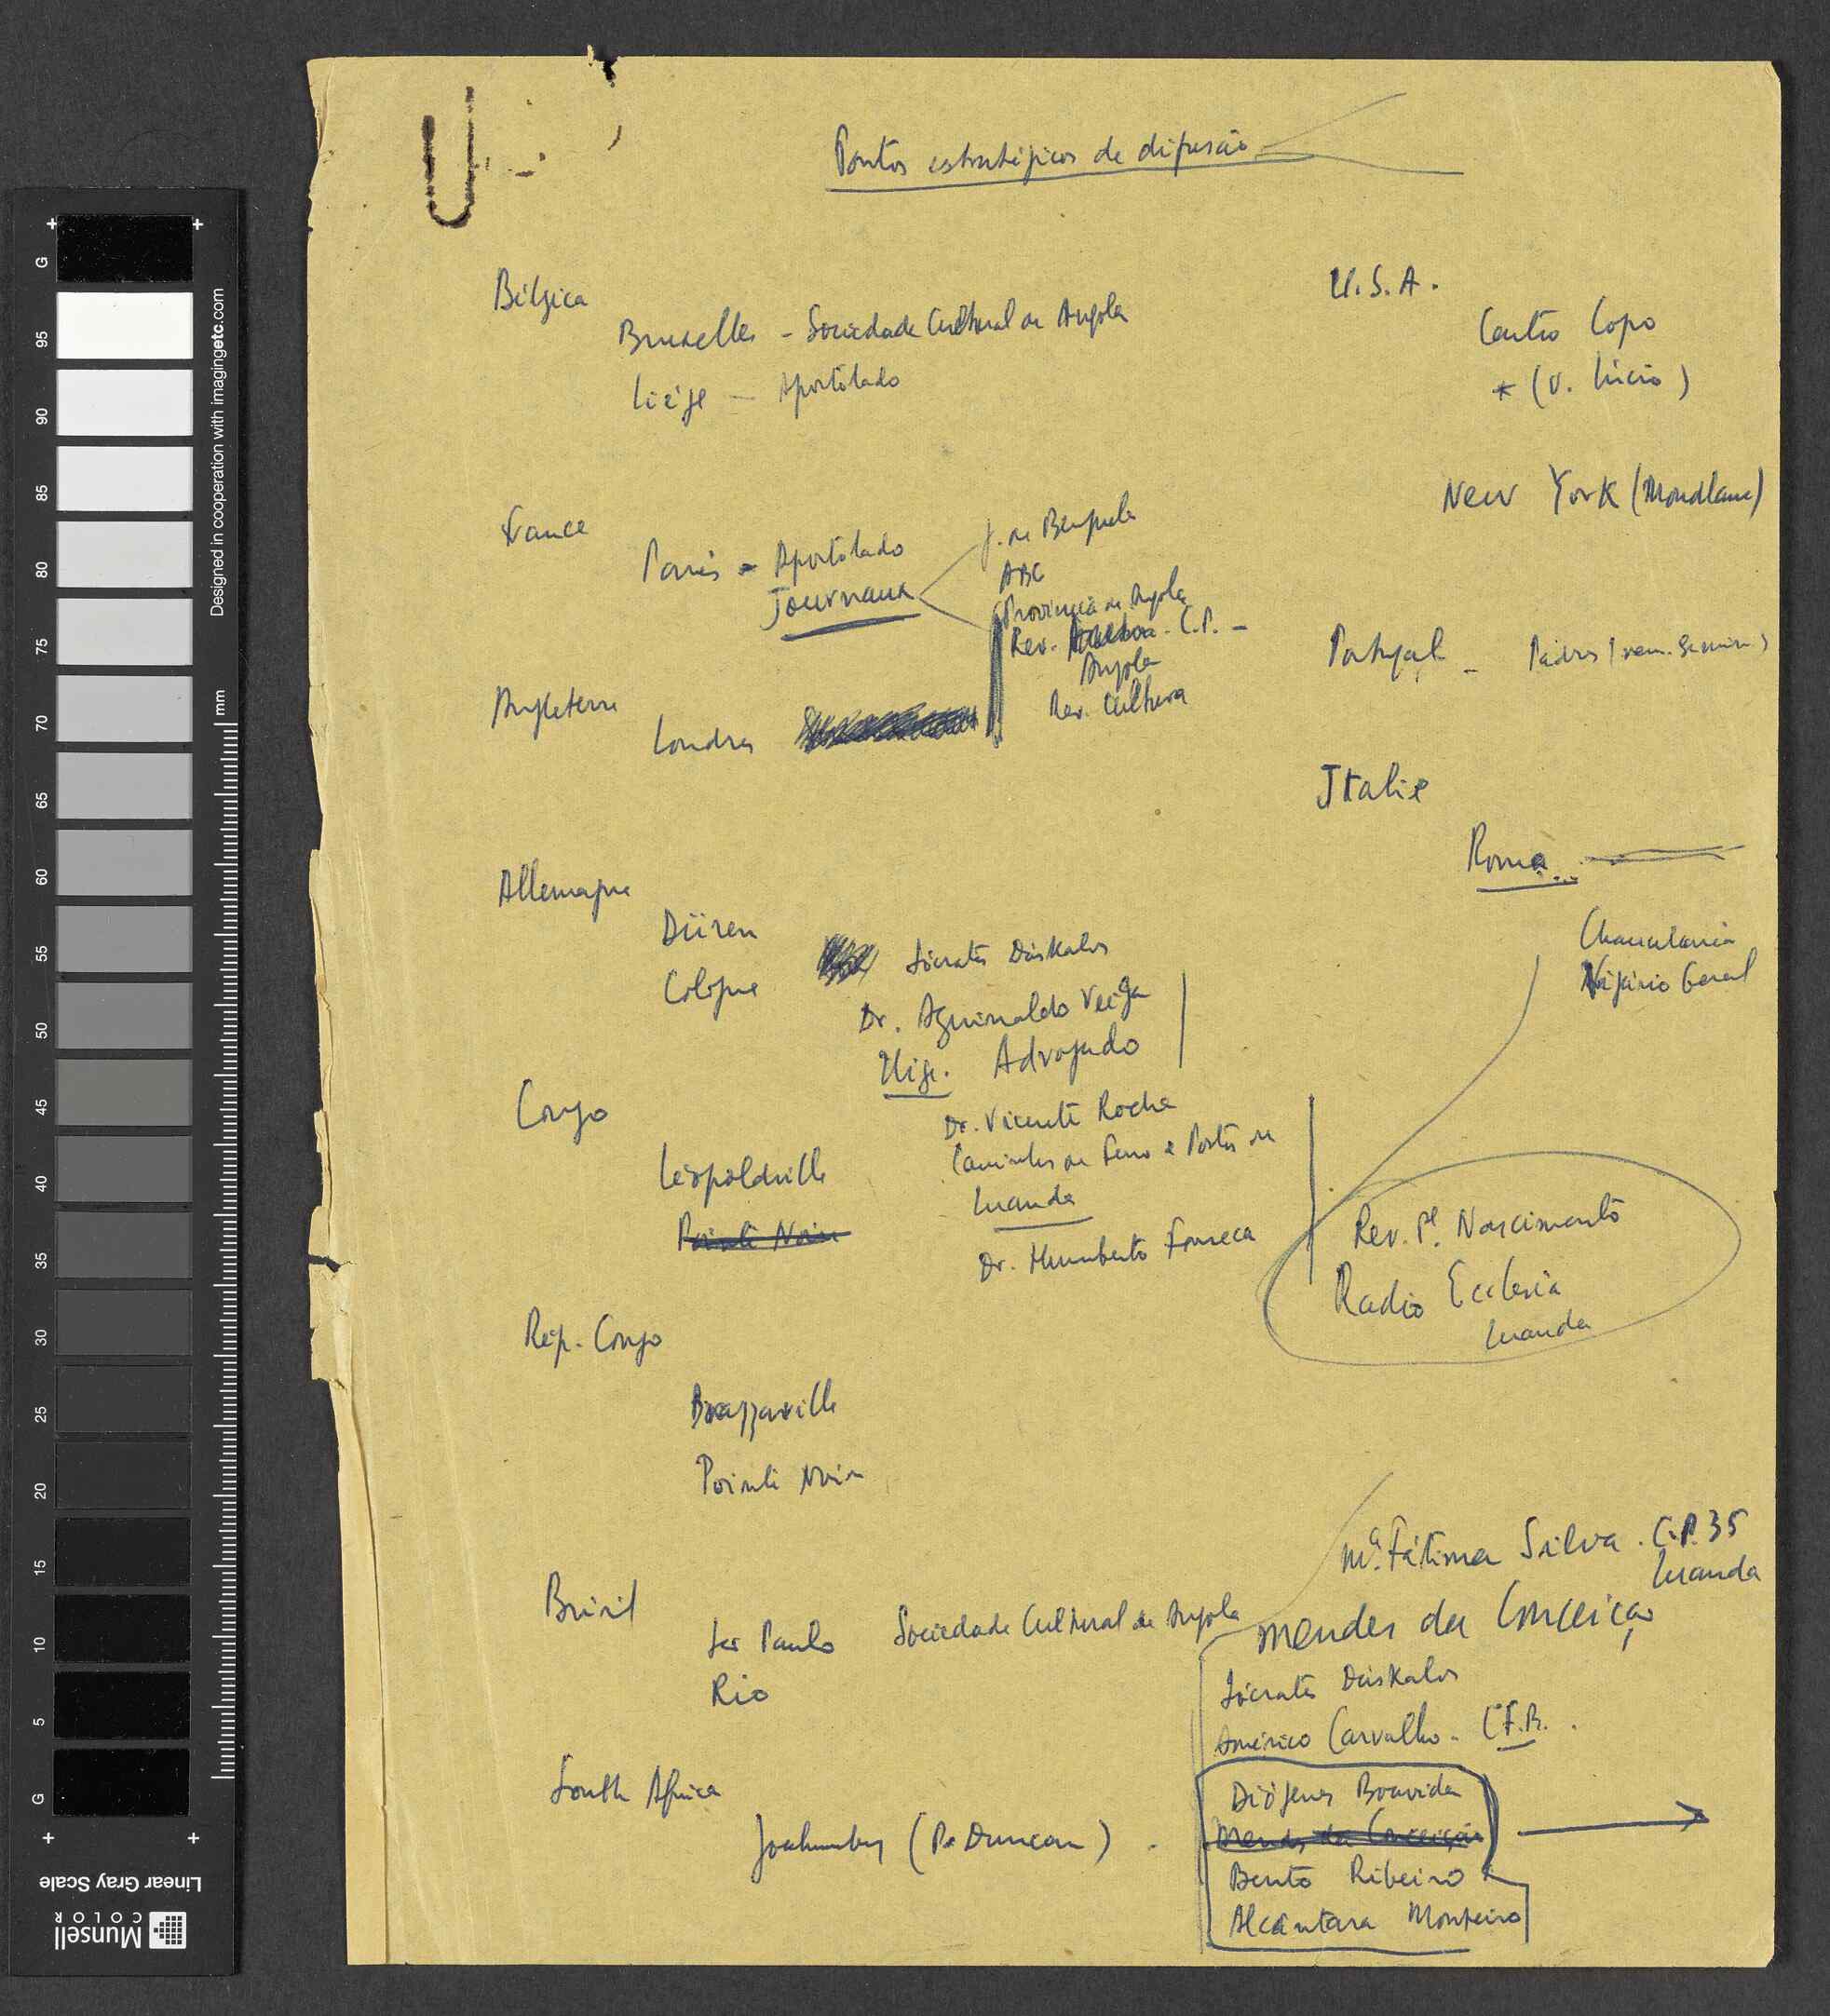 Pontos estratégicos de difusão
Bélgica
Bruxelles - Sociedade Cultural de Angola
Liège - Apostolado
France
Paris - Apostolado
Journaux
J. de Benguela
ABC
Província de Angola
Rev. C.P. -
Angola
Rev. Cultura
Angleterre
Londres
Allemagne
Düren
Cologne
Sócrates Dáskalos
Dr. Aguinaldo Veiga
Uige. Advogado
Congo
Léopoldville
Pointe Noire
Dr. Vicente Rocha
Caminhos de Ferro e Portos de
Luanda
Dr. Humberto Fonseca
Rép. Congo
Brazzaville
Pointe Noire
Brésil
São Paulo Sociedade Cultural de Angola
Rio
South Africa
(P. Duncan)
U.S.A.
Centro Copo
* (v. Lúcio)
New York (Mondlane)
Portugal - Padres
Italie
Roma
Chancelaria
Vigário Geral
Rev. Pe. Nascimento
Radio Ecclesia
Luanda
Mª. Fátima Silva. C.P. 35
Luanda
Mendes da Conceição
Sócrates Dáskalos
Américo Carvalho - C.F.B.
Diógenes Boavida
Mendes da Conceição
Bento Ribeiro
Alcântara Monteiro
Designed in cooperation with imagingetc.com
mm
G
95
90
85
80
75
70
65
60
55
50
45
40
35
30
25
20
15
10
5
G
Linear Gray Scale
Munsell
COLOR